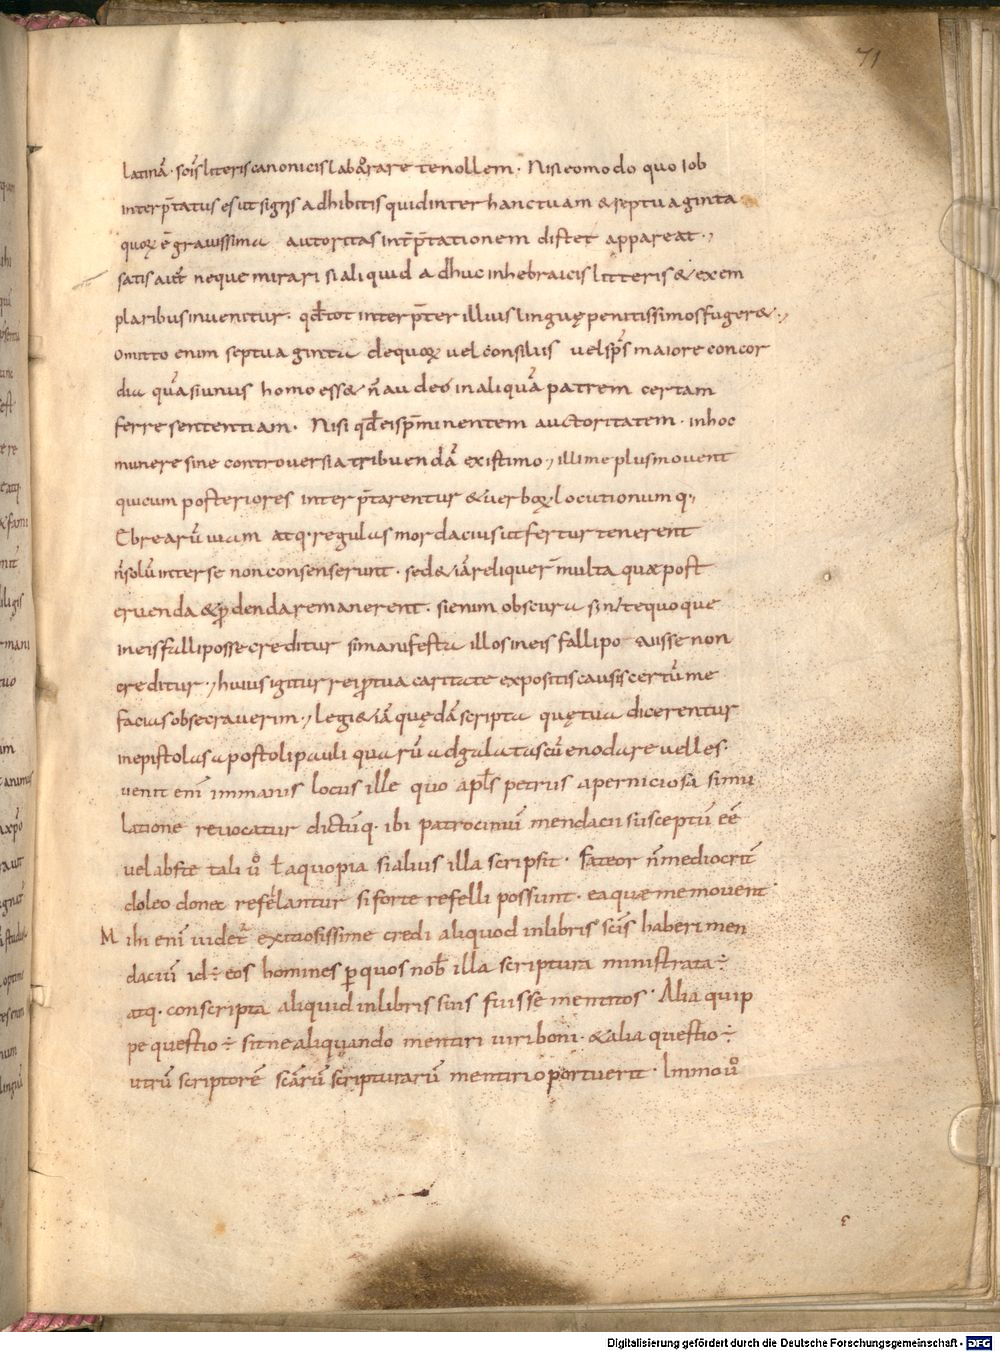 71
latinā · scīs literis canonicis laborare te nollem · Nisi eo modo quo Iob
interp̄tatus es ut signis adhibitis quid inter hanc tuam & septuaginta
quoꝝ ē gravissima autoritas int̄p̄tationem distet appareat ·,
satis aūt neque mirari si aliquid adhuc in hebraicis litteris & exem
plaribus invenitur · qđ tot interp̄ter illius linguę penitissimos fuger& ·,
omitto enim septuaginta de quoꝝ vel consilus vel sp̄s maiore concor
dia quā si unus homo ess& n̄ audeo in aliquā patrem certam
ferre sententiam · Nisi qđ eis p̄minentem auctoritatem · in hoc
munere sine controversia tribuendā existimo, illi me plus movent
qui cum posteriores interp̄tarentur & verboꝝ locutionum q·,
Ebrearū viam atq· regulas mordacius ut fertur tenerent
n̄ solū inter se non consenserunt · sed & iā reliquer̄ multa quæ post
eruenda & ꝓdenda remanerent · si enim obscura sunt te quoque
in eis falli posse creditur si manifesta illos in eis falli potuisse non
creditur ·, huius igitur rei ꝓ tua caritate expositis causis certū me
facias obsecraverim ·, legi & iā quędā scripta quę tua dicerentur
in epistolas apostoli pauli quarū ad galatas cū enodare velles ·
venit enī in manus locus ille quo apłs petrus a perniciosa simu
latione revocatur dictūq· ibi patrocinuī mendacii susceptū eē
vel abste tali uͦ ł a quopia si alius illa scripsit · fateor n̄ mediocrit̄
doleo donec refellantur si forte refelli possunt · ea quæ me movent
Mihi enī videt̄ exitiosissime credi aliquod in libris scīs haberi men
daciū id ÷ eos homines ꝑ quos nob̄ illa scriptura ministrata ÷
atq· conscripta aliquid in libris suis fuisse mentitos · Alia quip
pe questio ÷ sitne aliquando mentiri viri boni · & alia questio ÷
utrū scriptorē scārū scripturarū mentiri oportuerit · Immo uͦ
Digitalisierung gefördert durch die Deutsche Forschungsgemeinschaft - DFG